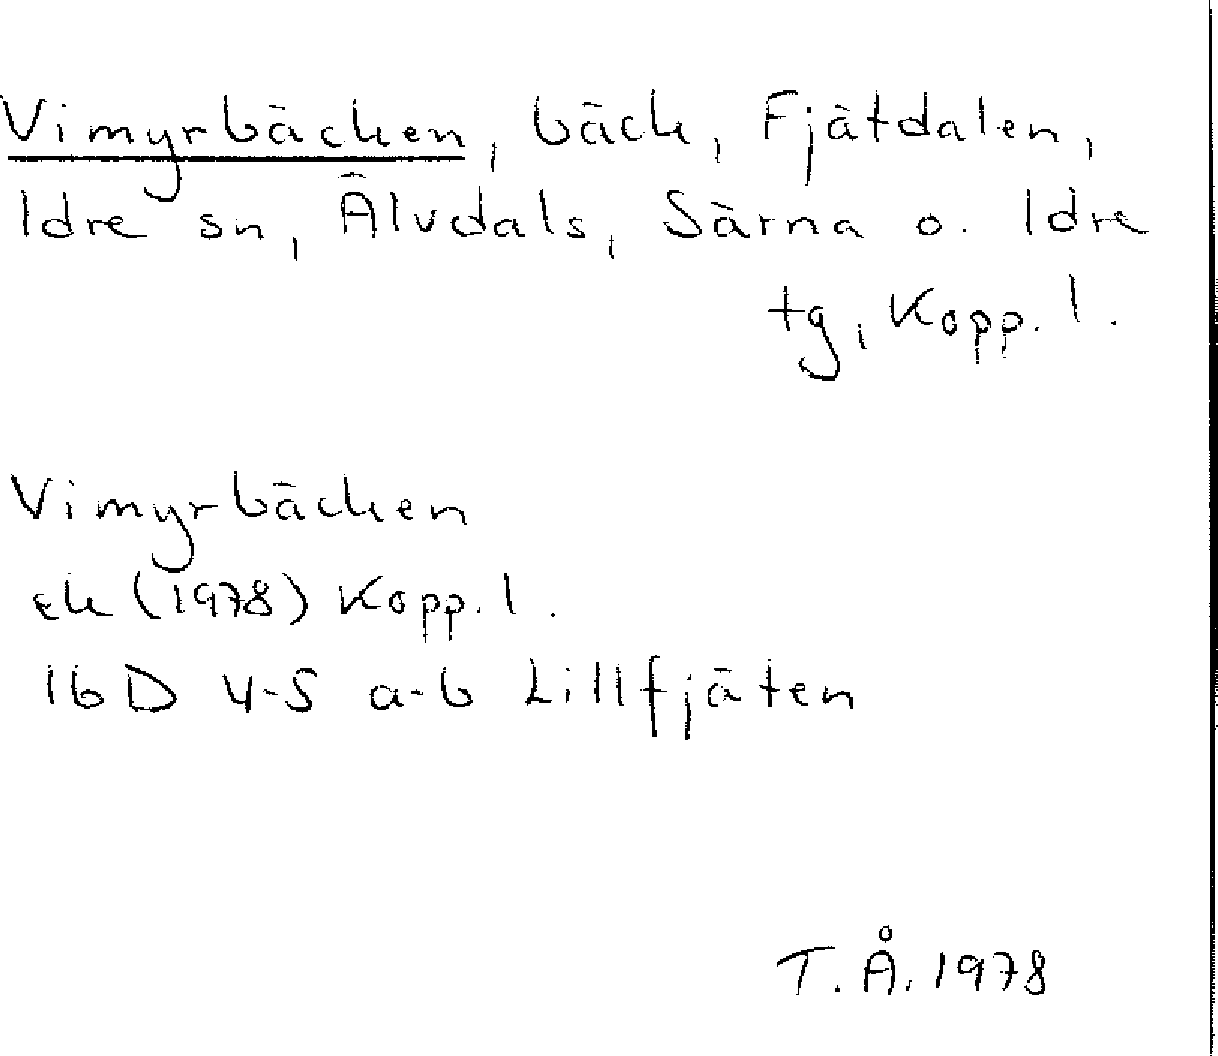 Vimyrbäcken, bäck, Fjätdalen,
Idre sn, Älvdals, Särna o. Idre
tg, Kopp. l.
Vimyrbäcken
ek (1978) Kopp. l.
16D 4-5 a-b Lillfjäten
T. Å. 1978